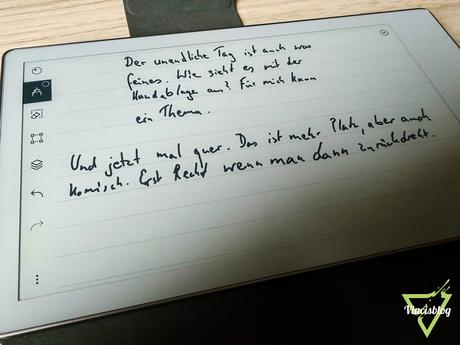 Der unendliche Tag ist auch was
feines. Wie sieht es mit der
Handablage aus? Für mich kaum
ein Thema.
Und jetzt mal quer. Das ist mehr Platz, aber auch
komisch. Erst Recht wenn man dann zurückdreht.
Vincisblog